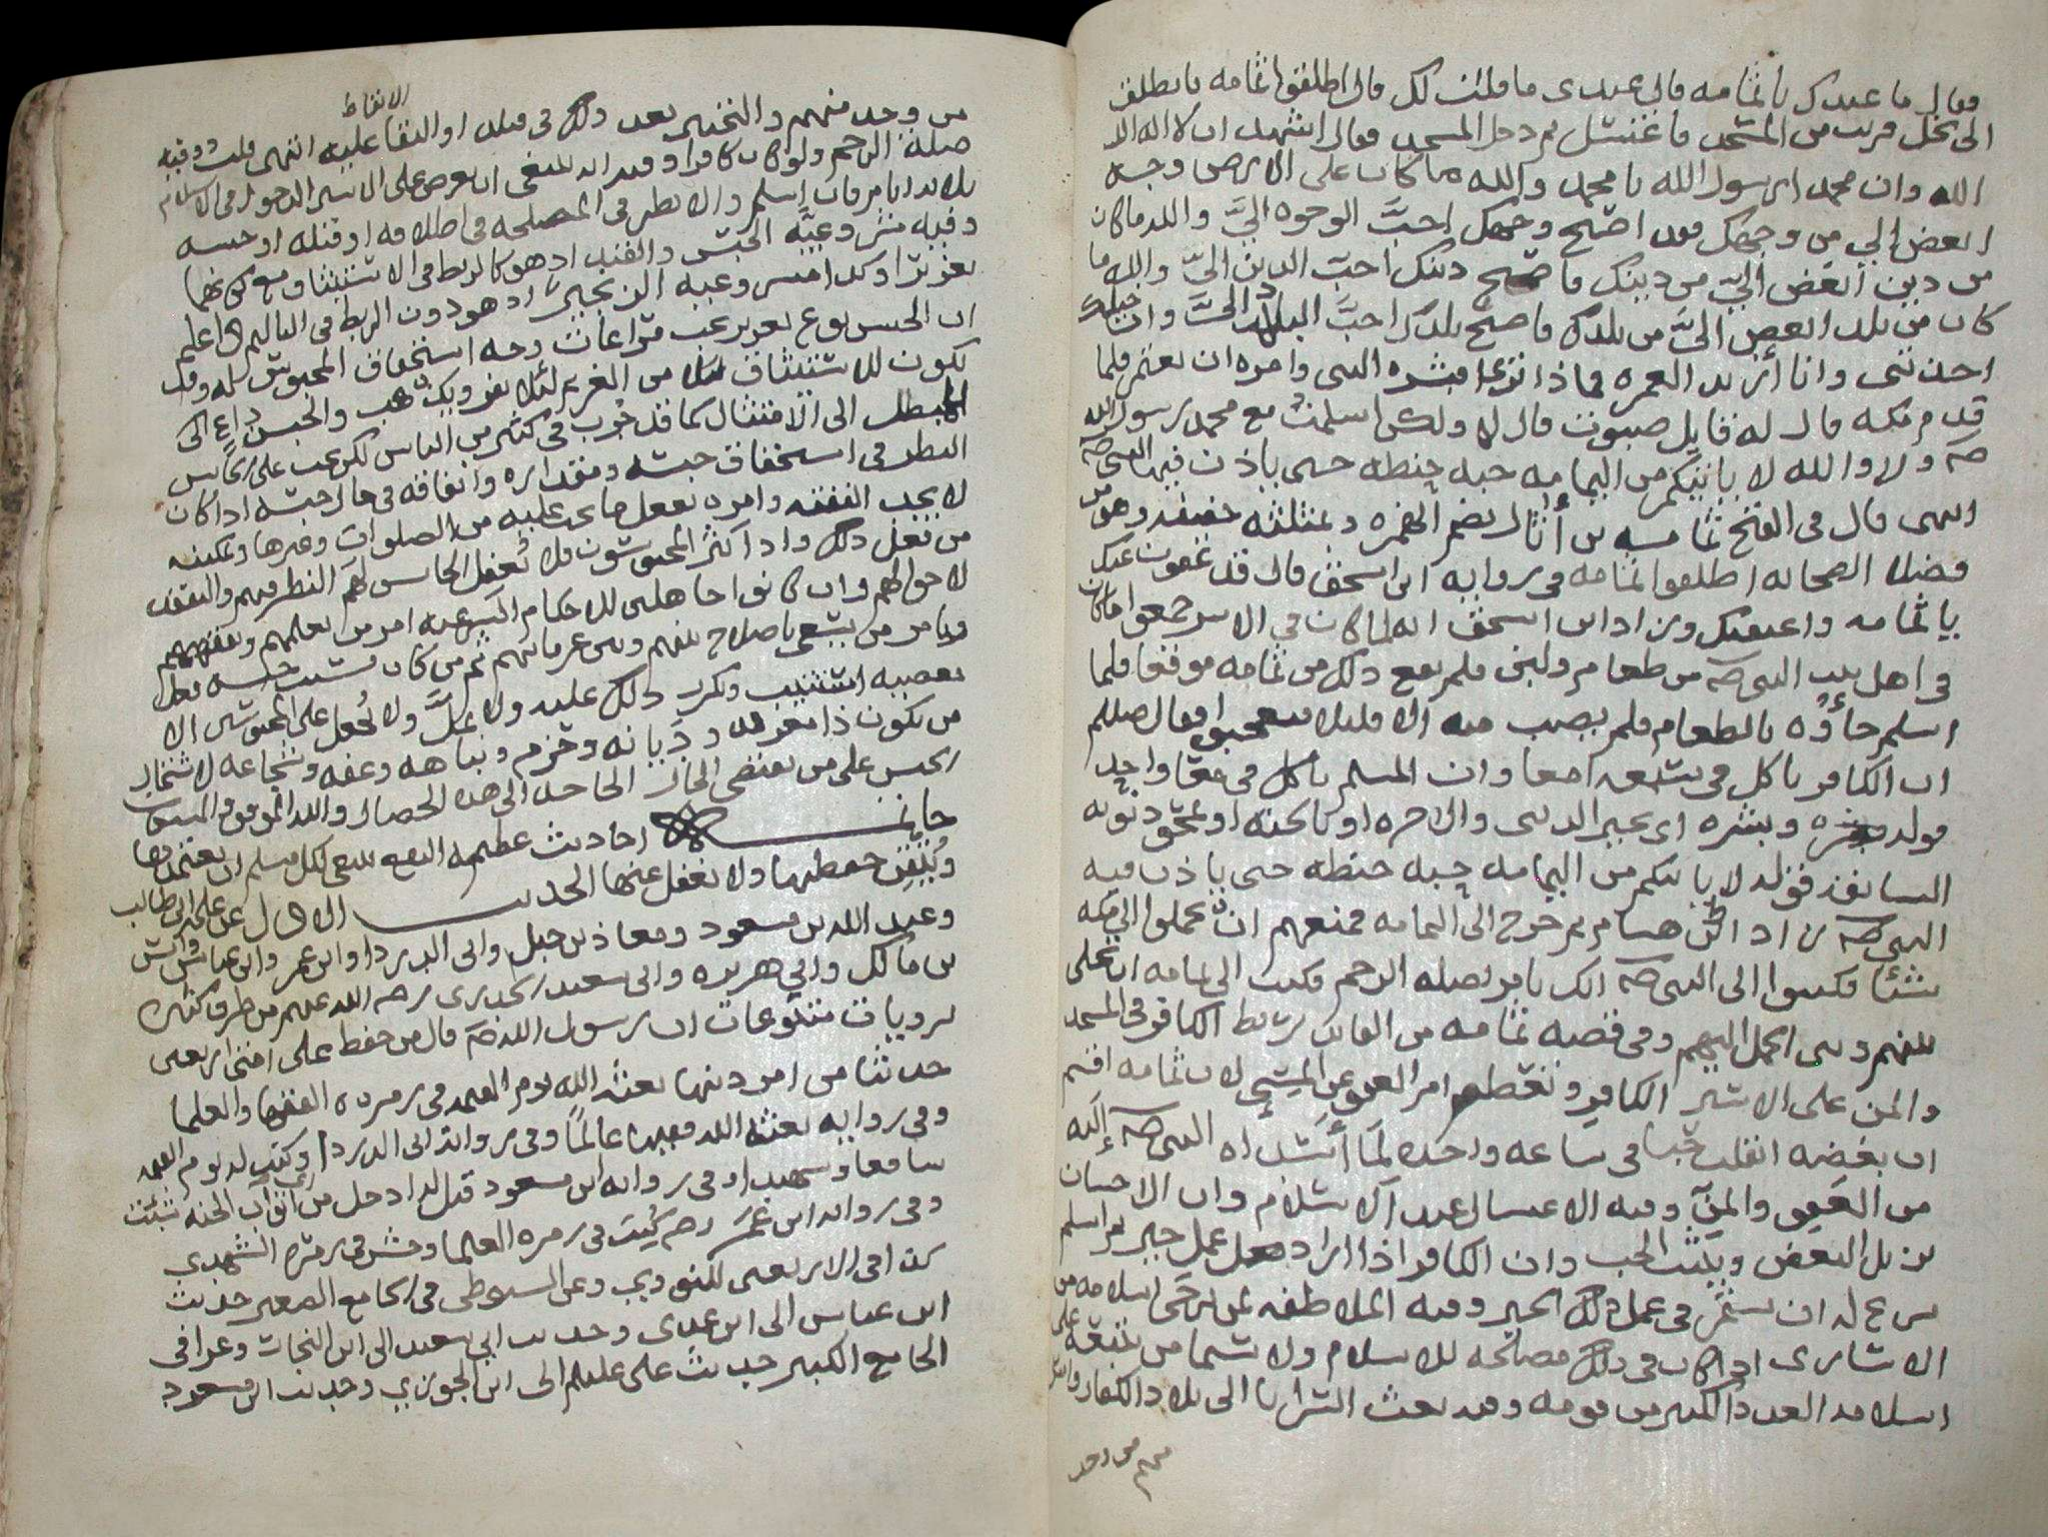 فقال ما عندك يا ثمامه قال عندي ما قلت لك قال اطلقوا ثمامه فانطلق
الى نخل قريب من المسجد فاغتسل ثم دخل المسجد فقال اشهد ان لا اله الا
الله وان محمدا رسول الله يا محمد والله ما كان على الارض وجه
ابغض الي من وجهك فقد اصبح وجهك احبَّ الوجوه اليَّ والله ما كان
من دين ابغض اليَّ من دينك فاصبح دينك احب الدين اليَّ والله ما
كان من بلد ابغض اليَّ من بلدك فاصبح بلدك احبَّ البلاد اليَّ وان خيلك
اخذتني وانا أريد العمره فماذا ترى فبشره النبي وامره ان يعتمر فلما
قدم مكه قال له قايل صبوت قال لا ولكن اسلمتُ مع محمد رسول الله
صلم ولا والله لا ياتيكم من اليمامه حبه حنطه حتى ياذن فيها النبي صلم
انتهى قال في الفتح ثمامه بن أُثال بضم الهمزه وبمثلثه خفيفه وهو من
فضلا الصحابه اطلقوا ثمامه في روايه ابن اسحق قال قد عفوت عنك
يا ثمامه واعتقتك وزاد ابن اسحق انه لما كان في الاسر جمعوا ما كان
في اهل بيت النبي صلم من طعام ولبن فلم يقع ذلك من ثمامه موقعا فلما
اسلم جاؤه بالطعام فلم يصب منه الا قليلا فتعجبوا فقال صللم
ان الكافر ياكل في سبعه امعا وان المسلم ياكل في معا واحد
قوله وبشره اي بخير الدنيا والاخره او بالجنه او بمحو ذنوبه
السابقه قوله لا ياتيكم من اليمامه حبه حنطه حتى ياذن فيه
النبي صلم زاد ابن هشام ثم خرج الى اليمامه فمنعهم ان يحملوا الى مكه
شيئا فكتبوا الى النبي صلم انك تامر بصله الرحم فكتب الى ثمامه ان يخلي
بينهم وبين الحمل اليهم وفي قصه ثمامه من الفوائد ربط الكافر في المسجد
والمن على الاسير الكافر وتعظيم امر العفو عن المسي لان ثمامه اقسم
ان بغضه انقلب حبا في ساعه واحده لما أسداه النبي صلم إليه
من العفو والمنِّ وفيه الاغتسال عند الاسلام وان الاحسان
يزيل البغض ويثبت الحب وان الكافر اذا اراد عمل خير ثم اسلم
شرع له ان يستمر في عمل ذلك الخير وفيه الملاطفه لمن يرجى اسلامه من
الاسارى اذا كان في ذلك مصلحه للاسلام ولا سيما من يتبعه على
اسلامه العدد الكثير من قومه وفيه بعث السرايا الى بلاد الكفار واسر
من وجد منهم والتخيير بعد ذلك في قتله او الابقا عليه انتهى قلت وفيه
صلة الرحم ولو كان كافرا وفيه انه ينبغي ان يعرض على الاسير الدخول في الاسلام
وفيه مشروعيَّه الحبس والقيد اذ هو كالربط في الاستيثاق
ان الحبس نوع تعزير يجب مراعات وجه استحقاق المحبوس له وقد
يكون للاستيثاق من الغريم لئلا يفر ويذهب والحبس داع الى
الامتثال كما قد جُرب في كثير من الناس لكن يجب على الحابس
النظر في استحقاق حبسه ومقداره وانفاقه في حال حبسه اذا كان
لا يجد النفقه وامره بفعل ما يجب عليه من الصلوات وغيرها وتمكينه
من فعل ذلك واذا كثر المحبوسون فلا يُغفل الحابس لهم النظر فيهم والتفقد
لاحوالهم وان كانوا جاهلين للاحكام الشرعيه امر من يعلمهم ويفقههم
ويامر من يسعى باصلاح بينهم وبين غرمائهم ثم من كان سبب حبسه فعل
معصيه استتيب وكرر ذلك عليه ولا يُملَّ ولا يُجعل على المحبوسين الا
من يكون ذا معرفه وديانه وحزم ونباهه وعفه وشجاعه لاشتمال
الحبس على من يقتضي الحال الحاجه الى هذه الخصال والله الموفق والمعين
خاتمـــــه احاديث عظيمه النفع ينبغي لكل مسلم ان يغتنمها
ويتقن حفظها ولا يغفل عنها الحديـــث الاول عن علي بن ابي طالب
وعبد الله بن مسعود ومعاذ بن جبل وابي الدردا وابن عمر وابن عباس وانس
بن مالك وابي هريره وابي سعيد الخدري رضي الله عنهم من طرق كثيره
بروايات متنوعات ان رسول الله صلم قال من حفظ على امتي اربعين
حديثا من امر دينها بعثه الله يوم القيمه في زمره الفقها والعلما
وفي روايه بعثه الله فقيها عالمًا وفي روايه ابي الدردا وكنت له يوم القيمه
شافعا وشهيدا وفي روايه ابن مسعود قيل له ادخل من اي ابواب الجنه شئت
وفي روايه ابن عُمَر رضي كُتِبَ في زمره العلما وحشر في زمره الشهدى
كذا في الاربعين للنووي وعزى السيوطي في الجامع الصغير حديث
ابن عباس الى ابن عدي وحديث ابي سعيد الى ابن النجار وعزا في
الجامع الكبير حديث علي عليلم الى ابن الجوزي وحديث ابن مسعود